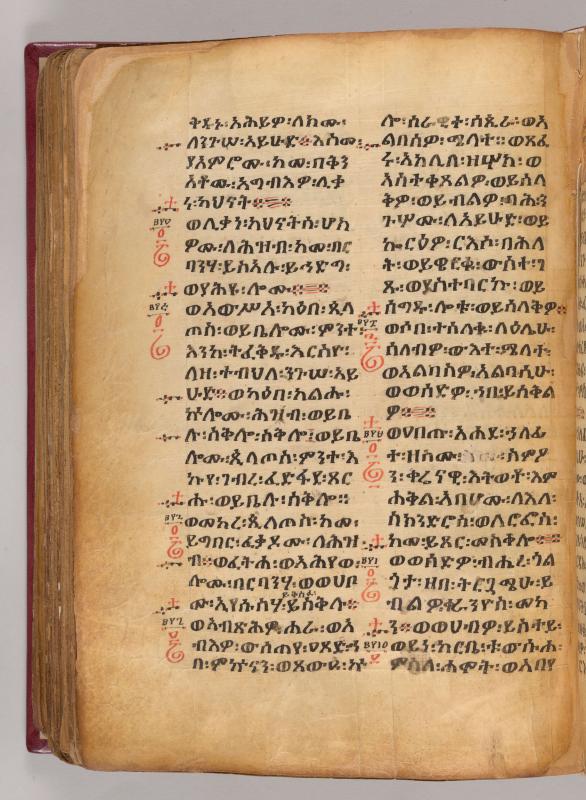 ቅዱኑ፡አሕይዎ፡ለክሙ፡
ለንጉሠ፡አይሁድ፨እስመ፡
ያአምሮሙ፡ከመ፡በቅን
አቶሙ፡አግብእዎ፡ሊቃ
ነ፡ካህናት፨
ወሊቃነ፡ካህናትሰ፡ሆክ
ዎሙ፡ለሕዝብ፡ከመ፡በር
ባንሃ፡ይስአሉ፡ይኅድግ፡
ወያሕዩ፡ሎሙ፨
ወአውሥአ፡ካዕበ፡ጲላ
ጦስ፡ወይቤሎሙ፡ምንተ፡
እንከ፡ትፈቅዱ፡እርስዮ፡
ለዘ፡ተብህለ፡ንጉሠ፡አይ
ሁድ፨ወካዕበ፡ከልሑ፡
ኵሎሙ፡ሕዝብ፡ወይቤ
ሉ፡ስቅሎ፡ስቅሎ፡ወይቤ
ሎሙ፡ጲላጦስ፡ምንተ፡እ
ኩየ፡ገብረ፡ፈድፋደ፡ጸር
ሑ፡ወይቤሉ፡ስቅሎ፡፡
ወመከረ፡ጲላጦስ፡ከመ፡
ይግበር፡ፈቃዶሙ፡ለሕዝ
ብ፡ወፈትሐ፡ወአሕየወ፡
ሎሙ፡በርባንሃ፡ወወሀቦ
ሙ፡ኢየሱስሃ፡ይስቅሉ፨
ወአብጽሕዎ፡ሐራ፡ወአ
ብእዎ፡ውስጠየ፡ዐጸደ፡
በ፡ምኵናን፡ወጸውዑ፡ኵ
ሎ፡ሰራዊተ፡ሰጲራ፡ወአ
ልበስዎ፡ሜላተ፡፡ወጸፈ
ሩ፡አክሊለ፡ዘሦክ፡ወ
አስተቀጸልዎ፡ወይሰላ
ቅዎ፡ወይብልዎ፡ባሕ፡ን
ጉሦሙ፡ለአይሁድ፡ወይ
ኰርዕዎ፡ርእሶ፡በሕለ
ት፡ወይዌርቁ፡ውስተ፡ገ
ጹ፡ወያስተባርኩ፡ወይ
ሰግዱ፡ሎቱ፡ወይሳለቅዎ፡
ወሶበ፡ተሳለቁ፡ላዕሌሁ፡
ሰለብዎ፡ውእተ፡ሜላተ፡
ወአልባስዎ፡አልባሲሁ፡
ወወሰድዎ፡ኀበ፡ይሰቅል
ዎ፨
ወዐበጡ፡አሐደ፡ኃላፊ
ተ፡ዘስሙ፡ስምዖ
ን፡ቀሬናዊ፡እትወቶ፡እም
ሐቅል፡አበሆሙ፡ለእለ፡
ስክንድሮስ፡ወለሮፎስ፡
ከመ፡ይጾር፡መስቀሎ፨
ወወሰድዎ፡ብሔረ፡ጎል
ጎታ፡ዘበ፡ትርጓሜሁ፡ይ
ብልዎ፡ቀራንዮስ፡መካ
ን፨ወወሀብዎ፡ይስተይ፡
ወይነ፡ከርቤ፡ቱውሱሐ፡
ምስለ፡ሐሞት፡ወአበየ